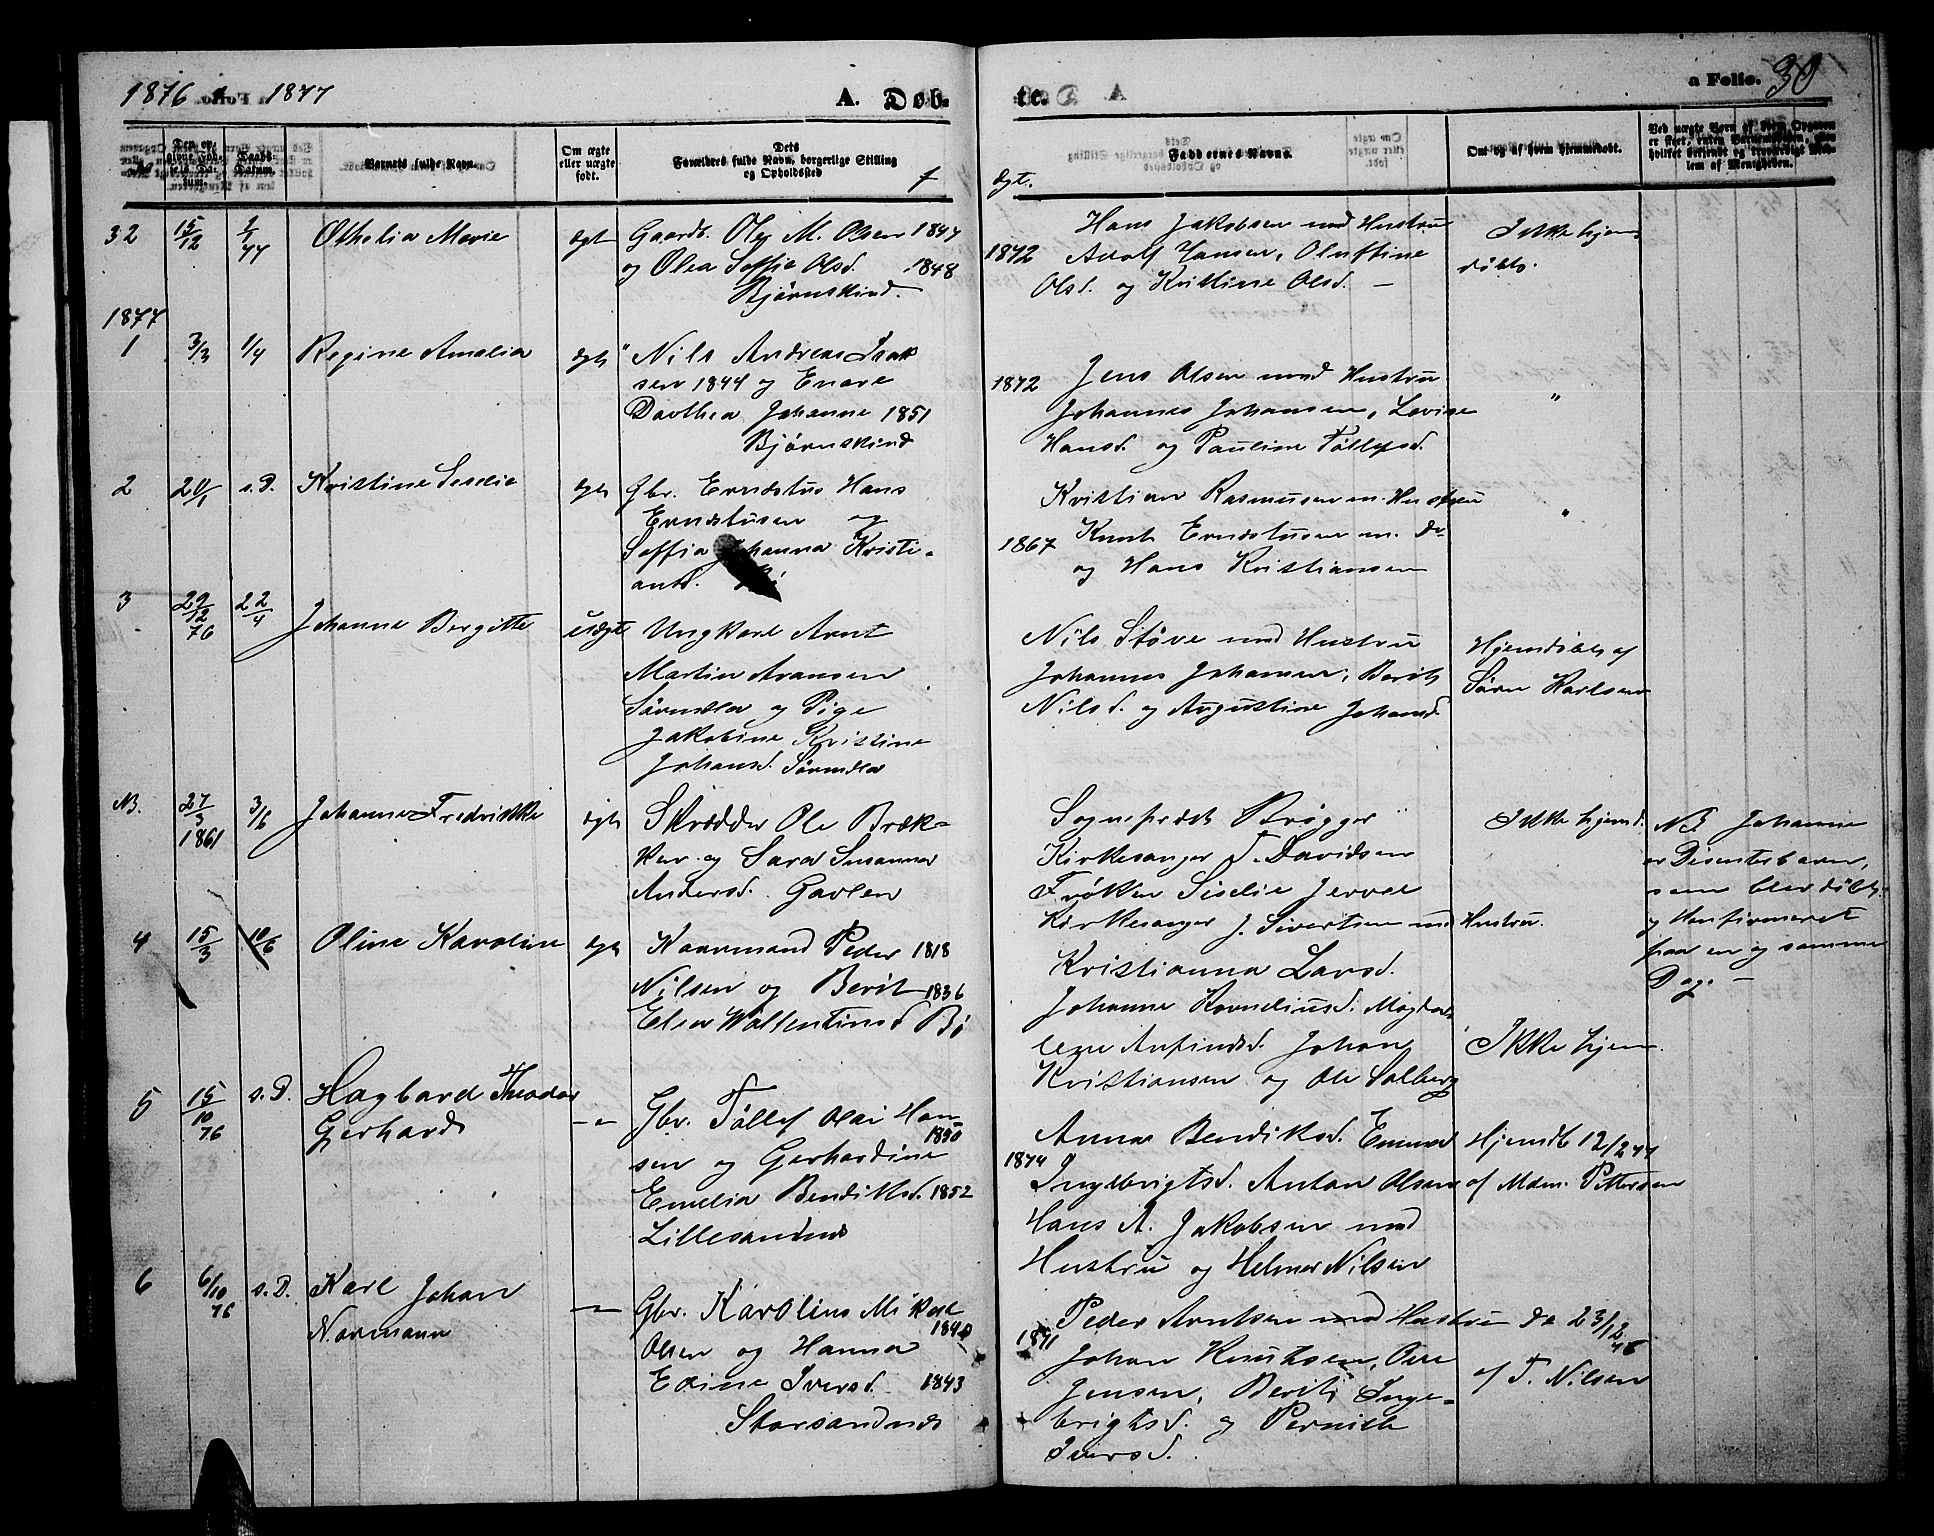 1876 & 1877
A. Døb-
te.
a Folio. 30
No
Den opgivne Fødsels Datum.
Daabs Datum.
Barnets fulde Navn.
Om ægte eller uægte født.
Dets Forældres fulde Navn, borgerlige Stilling og Opholdssted
f
Ægt.
Faddernes Navne.
Om og af hvem hjemmedøbt.
32 15/12 2/77 Othelia Marie ægt Gaardb. Ole M. Olsen 1847
og Olea Soffie Olsd. 1848
Bjørnskind.
1872 Hans Jakobsen med Hustru
Adolf Hansen, Oluffine
Olsd. og Kristine Olsd. —
Ikke hjem
døbt.
1877
1 3/3 1/4 Regine Amalia ægt Nils Andreas Isak
sen 1844 og Enare
Dorthea Johanne 1851
Bjørnskind
1872 Jens Olsen med Hustru
Johannes Johansen, Lovise
Hansd. og Pauline Tøllefsd.
"
2 20/1 s.D. Kristine Seselie ægt Gbr. Erndstus Hans
Erndstusen og
Soffia Johanna Kristi-
ansd.
1867
Kristian Rasmusen m. Hustru
Knut Erndstusen m. Do
og Hans Kristiansen
"
3 29/12 76 22/4 Johanne Bergitte uægte Ungkarl Arnt
Martin Aransen
Sørmdlen og Pige
Jakobine Kristine
Johansd. Sørmdlen
Nils Støve med Hustru
Johannes Johansen, Berit
Nilsd. og Augustine Johansd.
Hjemdøbt af
Søren Karlsen
NB. 27/3 1861 3/6 Johanne Fredrikke ægt Skrædder Ole Bræk-
ken og Sara Susanna
Andersd. Gavlen
Sogneprest Brøgger
Kirkesanger T. Davidsen
Frøken Siselie Jervel
Kirkesanger J. Sivertsen med Hustru.
Ikke hjemd.
NB Johanne
er Disenterbarn,
som blev døbt
og konfirmeret
paa en og samme
Dag. —
4 15/3 10/6 Oline Karoline ægt Kaarmand Peder 1818
Nilsen og Berit 1836
Elsea Wallentinsd Bø
Kristianna Larsd.
Johanne Korneliusd. Magda
lene Anfindsd. Johan
Kristiansen og Ole Solberg
Ikke hjem.
5 15/10 76 s.D. Hagbard Theodor
Gerhard
—"— Gbr. Tøllef Olai Han-
sen og Gerhardine 1850
Emelia Bendiksd. 1852
Lillesandnes
1874 Anna Bendiksd. Emma
Ingebrigtsd. Anton Olsen
Hans A. Jakobsen med
Hustru og Helmer Nilsen
Hjemdb 12/2 77
af Mdm. Pettersen
6 6/10 76 s.D. Karl Johan
Normann
—"— Gbr. Karolius Mikal
Olsen og Hanna 1840
Edine Iversd. 1843
Storsandnes
1871 Peder Arntsen med Hustru
Johan Knutsen, Ole
Jensen, Berit Inge-
brigtsd. og Pernille
Iversd.
Do 23/12 76
af T. Nilsen